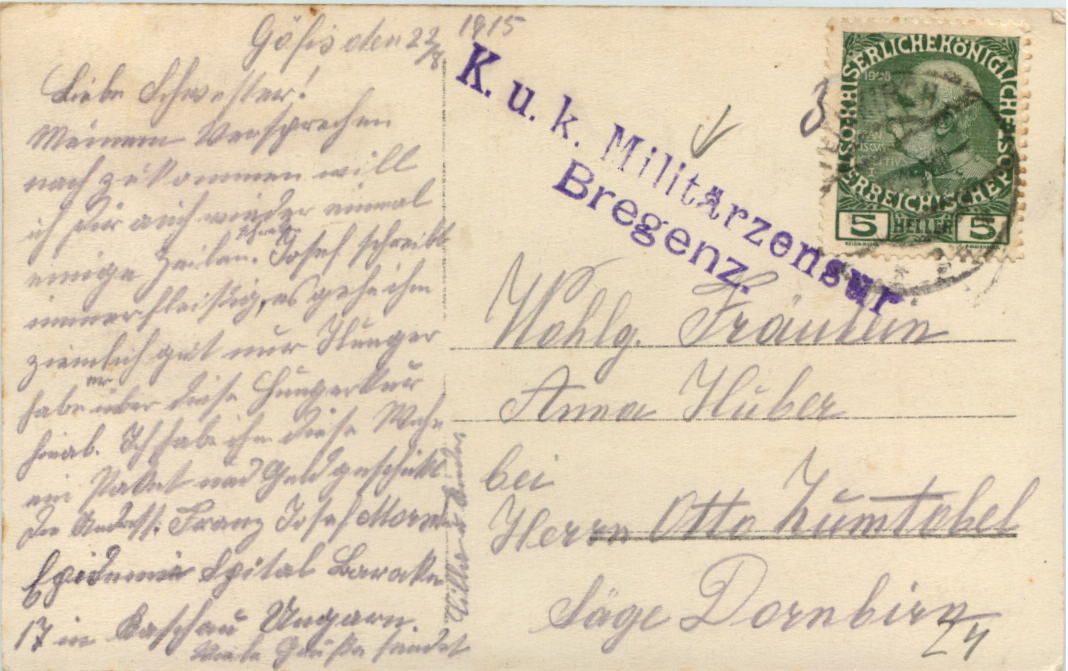 Göfis den 22/8 1915
Liebe Schwester!
Meinem Versprechen
nach zu kommen will
ich dir auch wieder einmal
einige Zeilen. Josef schreibt
schreiben
immer fleißig, es gehe ihm
ziemlich gut nur Hunger
habe er über diese Hungerkur
hinab. Ich habe ihm diese Woche
ein Paket und Geld geschickt
die Andress. Franz Josef
Epidemie Spital Baracke
17 in Kaschau Ungarn
Viele Grüße sendet
K. u. k. Militärzensur
Bregenz.
3
KAISERLICHE KÖNIGLICHE ÖSTERREICHISCHE POST
1908
5 HELLER 5
Wohlg. Fräulein
Anna Huber
bei
Herrn Otto Zumtobel
Säge Dornbirn
24